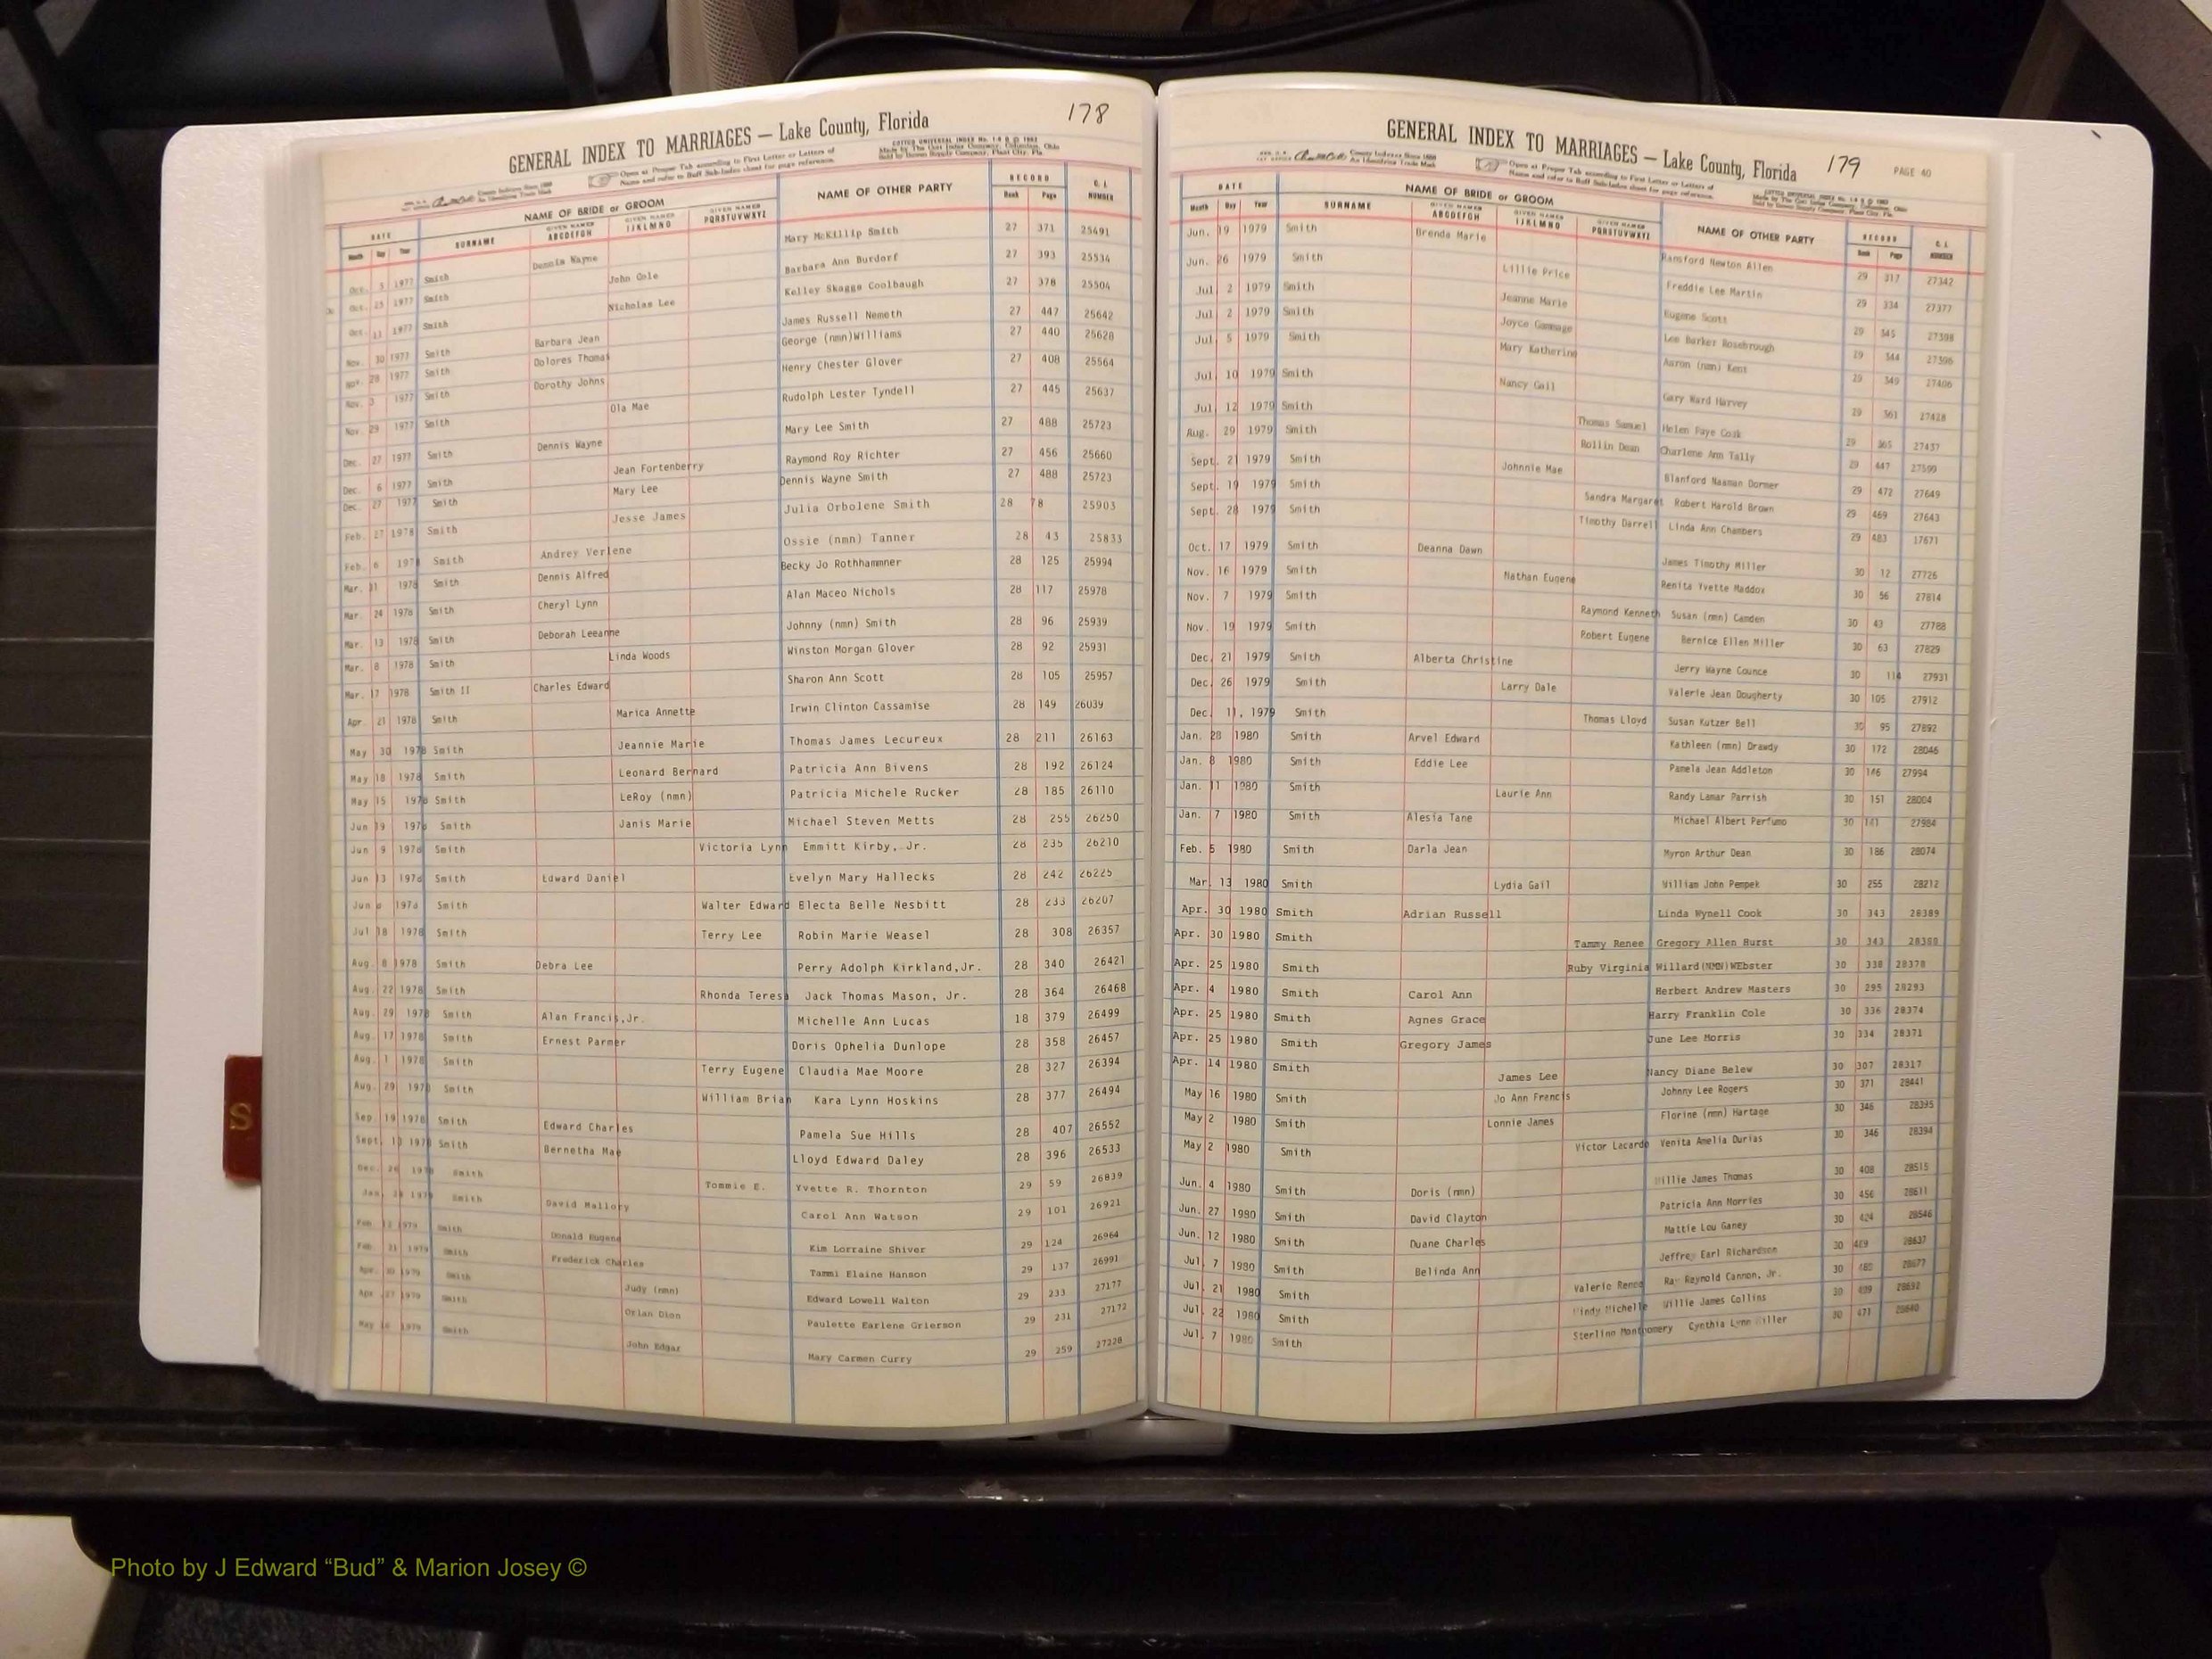 178
GENERAL INDEX TO MARRIAGES — Lake County, Florida
Open at Proper Tab according to First Letter or Letters of
Name and refer to Buff Sub-Index sheet for page reference.
DATE NAME OF BRIDE or GROOM NAME OF OTHER PARTY RECORD C. I. NUMBER
Month Day Year SURNAME GIVEN NAMES ABCDEFGH GIVEN NAMES IJKLMNO GIVEN NAMES PQRSTUVWXYZ Book Page
Oct. 5 1977 Smith Dennis Wayne Mary McKillip Smith 27 371 25491
Oct. 25 1977 Smith John Cole Barbara Ann Burdorf 27 393 25534
Oct. 1977 Smith Nicholas Lee Kelley Skaggs Coolbaugh 27 378 25504
Nov. 30 1977 Smith Barbara Jean James Russell Nemeth 27 447 25642
Nov. 28 1977 Smith Dolores Thomas George (nmn)Williams 27 440 25628
Nov. 3 1977 Smith Dorothy Johns Henry Chester Glover 27 408 25564
Nov. 29 1977 Smith Ola Mae Rudolph Lester Tyndell 27 445 25637
Dec. 27 1977 Smith Dennis Wayne Mary Lee Smith 27 488 25723
Dec. 6 1977 Smith Jean Fortenberry Raymond Roy Richter 27 456 25660
Dec. 27 1977 Smith Mary Lee Dennis Wayne Smith 27 488 25723
Feb. 27 1978 Smith Jesse James Julia Orbolene Smith 28 78 25903
Feb. 6 1978 Smith Andrey Verlene Ossie (nmn) Tanner 28 43 25833
Mar. 31 1978 Smith Dennis Alfred Becky Jo Rothhammner 28 125 25994
Mar. 24 1978 Smith Cheryl Lynn Alan Maceo Nichols 28 117 25978
Mar. 13 1978 Smith Deborah Leeanne Johnny (nmn) Smith 28 96 25939
Mar. 8 1978 Smith Linda Woods Winston Morgan Glover 28 92 25931
Mar. 17 1978 Smith II Charles Edward Sharon Ann Scott 28 105 25957
Apr. 21 1978 Smith Marica Annette Irwin Clinton Cassamise 28 149 26039
May 30 1978 Smith Jeannie Marie Thomas James Lecureux 28 211 26163
May 18 1978 Smith Leonard Bernard Patricia Ann Bivens 28 192 26124
May 15 1978 Smith LeRoy (nmn) Patricia Michele Rucker 28 185 26110
Jun 19 1978 Smith Janis Marie Michael Steven Metts 28 255 26250
Jun 9 1978 Smith Victoria Lynn Emmitt Kirby, Jr. 28 235 26210
Jun 13 1978 Smith Edward Daniel Evelyn Mary Hallecks 28 242 26225
Jun 1978 Smith Walter Edward Electa Belle Nesbitt 28 233 26207
Jul 18 1978 Smith Terry Lee Robin Marie Weasel 28 308 26357
Aug. 8 1978 Smith Debra Lee Perry Adolph Kirkland,Jr. 28 340 26421
Aug. 22 1978 Smith Rhonda Teresa Jack Thomas Mason, Jr. 28 364 26468
Aug. 29 1978 Smith Alan Francis,Jr. Michelle Ann Lucas 18 379 26499
Aug. 17 1978 Smith Ernest Parmer Doris Ophelia Dunlope 28 358 26457
Aug. 1 1978 Smith Terry Eugene Claudia Mae Moore 28 327 26394
Aug. 29 1978 Smith William Brian Kara Lynn Hoskins 28 377 26494
Sep. 19 1978 Smith Edward Charles Pamela Sue Hills 28 407 26552
Sept. 1978 Smith Bernetha Mae Lloyd Edward Daley 28 396 26533
Dec. 26 1978 Smith Tommie E. Yvette R. Thornton 29 59 26839
Jan. 1979 Smith David Mallory Carol Ann Watson 29 101 26921
Feb 12 1979 Smith Donald Eugene Kim Lorraine Shiver 29 124 26964
Feb. 21 1979 Smith Frederick Charles Tammi Elaine Hanson 29 137 26991
Apr. 30 1979 Smith Judy (nmn) Edward Lowell Walton 29 233 27177
Apr 27 1979 Smith Orlan Dion Paulette Earlene Grierson 29 231 27172
May 1979 Smith John Edgar Mary Carmen Curry 29 259 27228
GENERAL INDEX TO MARRIAGES — Lake County, Florida 179 PAGE 40
Open at Proper Tab according to First Letter or Letters of
Name and refer to Buff Sub-Index sheet for page reference.
DATE NAME OF BRIDE or GROOM NAME OF OTHER PARTY RECORD C. I. NUMBER
Month Day Year SURNAME GIVEN NAMES ABCDEFGH GIVEN NAMES IJKLMNO GIVEN NAMES PQRSTUVWXYZ Book Page
Jun. 19 1979 Smith Brenda Marie Ransford Newton Allen 29 317 27342
Jun. 26 1979 Smith Lillie Price Freddie Lee Martin 29 334 27377
Jul 2 1979 Smith Jeanne Marie Eugene Scott 29 345 27398
Jul 2 1979 Smith Joyce Gammage Lee Barker Rosebrough 29 344 27396
Jul. 5 1979 Smith Mary Katherine Aaron (nmn) Kent 29 349 27406
Jul. 10 1979 Smith Nancy Gail Gary Ward Harvey 29 361 27428
Jul. 12 1979 Smith Thomas Samuel Helen Faye Cook 29 365 27437
Aug. 29 1979 Smith Rollin Dean Charlene Ann Tally 29 447 27599
Sept. 21 1979 Smith Johnnie Mae Blanford Nasman Dormer 29 472 27649
Sept. 19 1979 Smith Sandra Margaret Robert Harold Brown 29 469 27643
Sept. 28 1979 Smith Timothy Darrell Linda Ann Chambers 29 483 17671
Oct. 17 1979 Smith Deanna Dawn James Timothy Miller 30 12 27726
Nov. 16 1979 Smith Nathan Eugene Renita Yvette Maddox 30 56 27814
Nov. 7 1979 Smith Raymond Kenneth Susan (nmn) Camden 30 43 27788
Nov. 19 1979 Smith Robert Eugene Bernice Ellen Miller 30 63 27829
Dec. 21 1979 Smith Alberta Christine Jerry Wayne Counce 30 114 27931
Dec. 26 1979 Smith Larry Dale Valerie Jean Dougherty 30 105 27912
Dec. 11, 1979 Smith Thomas Lloyd Susan Kutzer Bell 30 95 27892
Jan. 28 1980 Smith Arvel Edward Kathleen (nmn) Drawdy 30 172 28046
Jan. 8 1980 Smith Eddie Lee Pamela Jean Addleton 30 146 27994
Jan. 11 1980 Smith Laurie Ann Randy Lamar Parrish 30 151 28004
Jan. 7 1980 Smith Alesia Tane Michael Albert Perfumo 30 141 27984
Feb. 5 1980 Smith Darla Jean Myron Arthur Dean 30 186 28074
Mar. 13 1980 Smith Lydia Gail William John Pempek 30 255 28212
Apr. 30 1980 Smith Adrian Russell Linda Wynell Cook 30 343 28389
Apr. 30 1980 Smith Tammy Renee Gregory Allen Hurst 30 343 28388
Apr. 25 1980 Smith Ruby Virginia Willard(NMN)WEbster 30 338 28378
Apr. 4 1980 Smith Carol Ann Herbert Andrew Masters 30 295 28293
Apr. 25 1980 Smith Agnes Grace Harry Franklin Cole 30 336 28374
Apr. 25 1980 Smith Gregory James June Lee Morris 30 334 28371
Apr. 14 1980 Smith James Lee Nancy Diane Belew 30 307 28317
May 16 1980 Smith Jo Ann Francis Johnny Lee Rogers 30 371 28441
May 2 1980 Smith Lonnie James Florine (nmn) Hartage 30 346 28395
May 2 1980 Smith Victor Lacardo Venita Amelia Durias 30 346 28394
Jun. 4 1980 Smith Doris (nmn) Willie James Thomas 30 408 28515
Jun. 27 1980 Smith David Clayton Patricia Ann Norries 30 456 28611
Jun. 12 1980 Smith Duane Charles Mattie Lou Ganey 30 424 28546
Jul. 7 1980 Smith Belinda Ann Jeffrey Earl Richardson 30 469 28637
Jul. 21 1980 Smith Valerie Renee Ray Reynold Cannon, Jr. 30 28677
Jul. 22 1980 Smith Windy Michelle Willie James Collins 30 28692
Jul. 7 1980 Smith Sterling Montgomery Cynthia Lynn Miller 30 471 28640
S
Photo by J Edward “Bud” & Marion Josey ©